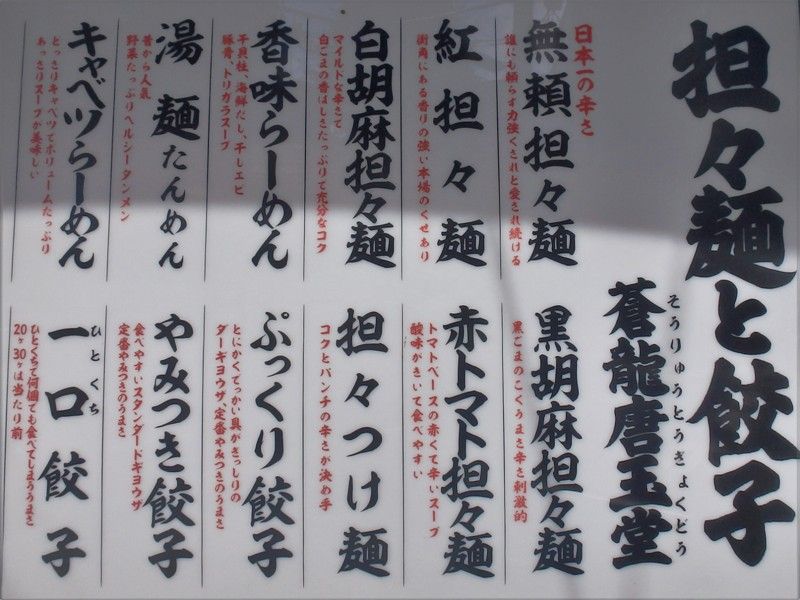 担々麺と餃子
蒼龍唐玉堂
そうりゅうとうぎょくどう
日本一の辛さ
無頼担々麺
誰にも頼らず力強くされど愛され続ける
紅担々麺
街角にある香りの強い本場のくせあり
白胡麻担々麺
マイルドな辛さで
白ごまの香ばしさたっぷりで充分なコク
香味らーめん
干貝柱、海鮮だし、干しエビ
豚骨、トリガラスープ
湯麺たんめん
昔から人気
野菜たっぷりヘルシータンメン
キャベツらーめん
どっさりキャベツでボリュームたっぷり
あっさりスープが美味しい
黒胡麻担々麺
黒ごまのこくうまさ辛さ刺激的
赤トマト担々麺
トマトベースの赤くて辛いスープ
酸味がきいて食べやすい
担々つけ麺
コクとパンチの辛さが決め手
ぷっくり餃子
とにかくでっかい具がぎっしりの
ダーギョウザ、定番やみつきのうまさ
やみつき餃子
食べやすいスタンダードギョウザ
定番やみつきのうまさ
一口餃子
ひとくち
ひとくちで何個でも食べてしまううまさ
20ヶ30ヶは当たり前